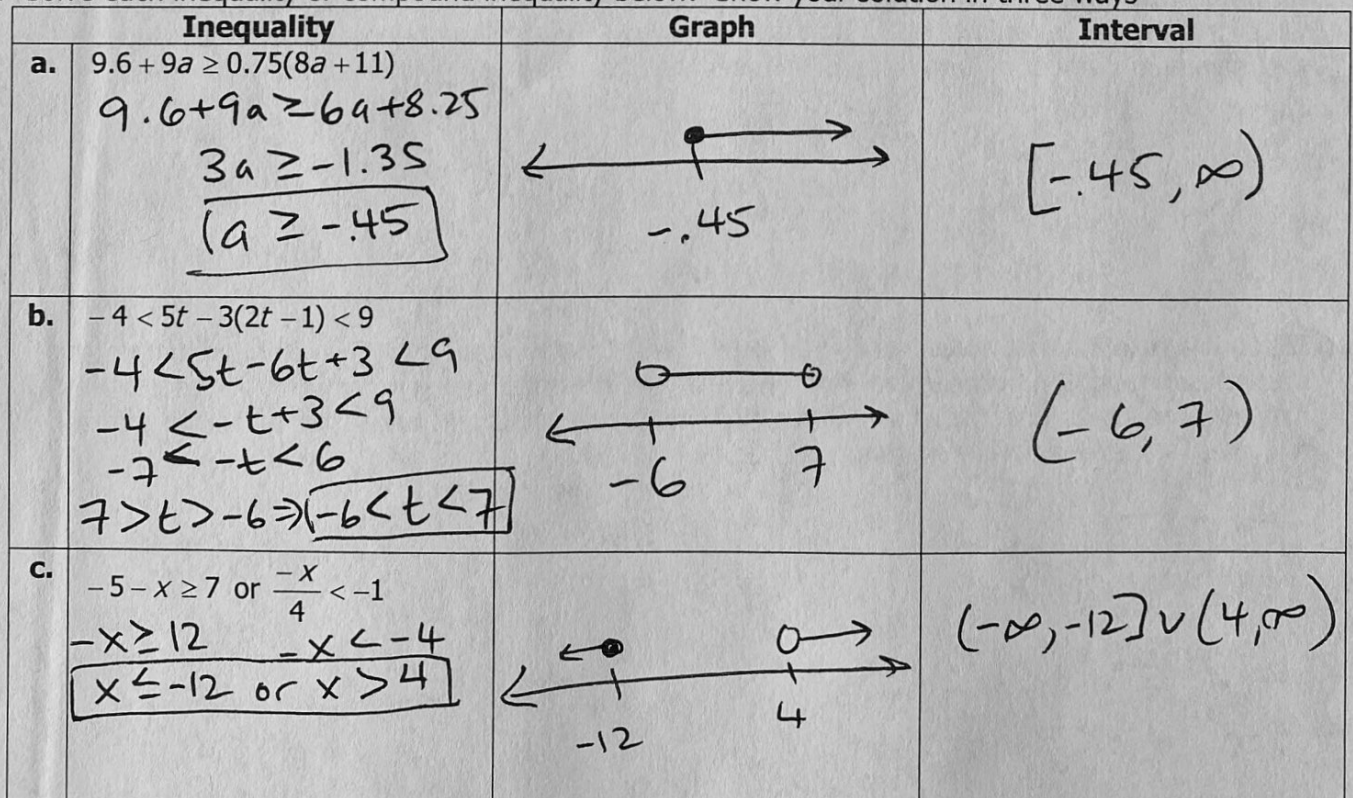 Inequality Graph Interval
a. 9.6 + 9a ≥ 0.75(8a + 11)
9.6+9a ≥ 6a+8.25
3a ≥ -1.35
a ≥ -.45
-.45
[-.45, ∞)
b. -4 < 5t - 3(2t - 1) < 9
-4 < 5t-6t+3 < 9
-4 < -t+3 < 9
-7 < -t < 6
7 > t > -6 ⇒ -6 < t < 7
-6 7
(-6, 7)
c. -5 - x ≥ 7 or -x/4 < -1
-x ≥ 12 -x < -4
x ≤ -12 or x > 4
-12 4
(-∞, -12] ∪ (4, ∞)